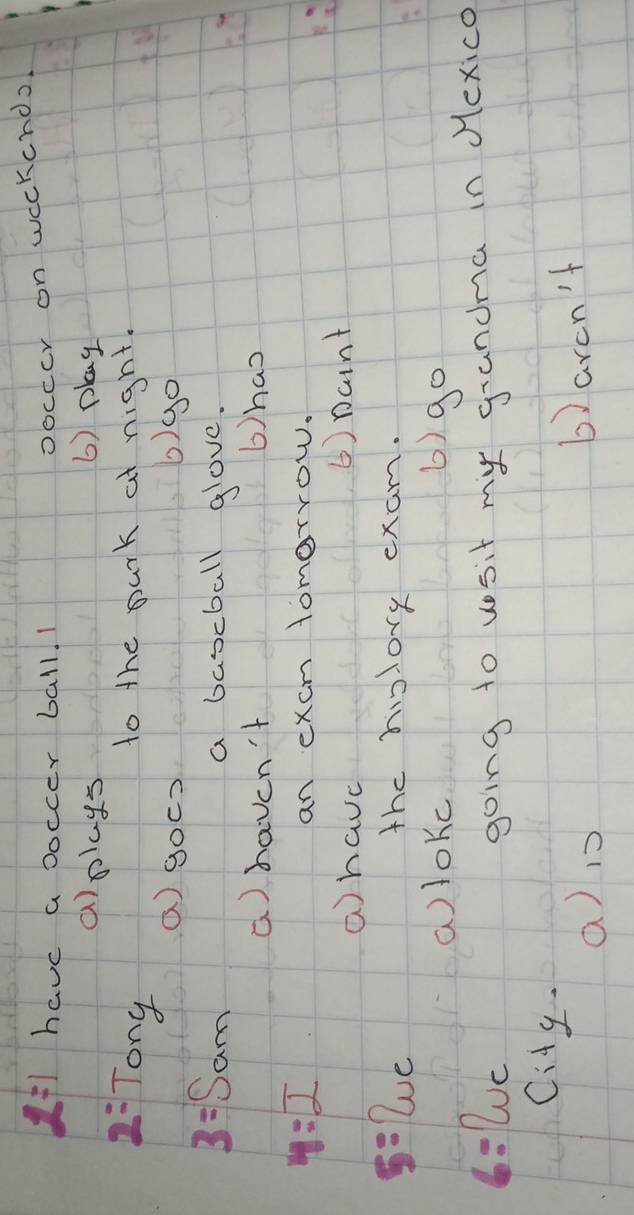 1= I have a soccer ball. I soccer on weekends.
a) plays b) play
2= Tony to the park at night.
a) goes b) go
3= Sam a baseball glove.
a) haven't b) has
4= I an exam tomorrow.
a) have b) paint
5= We the history exam.
a) toke b) go
6= We going to visit my grandma in Mexico
City.
a) is b) aren't